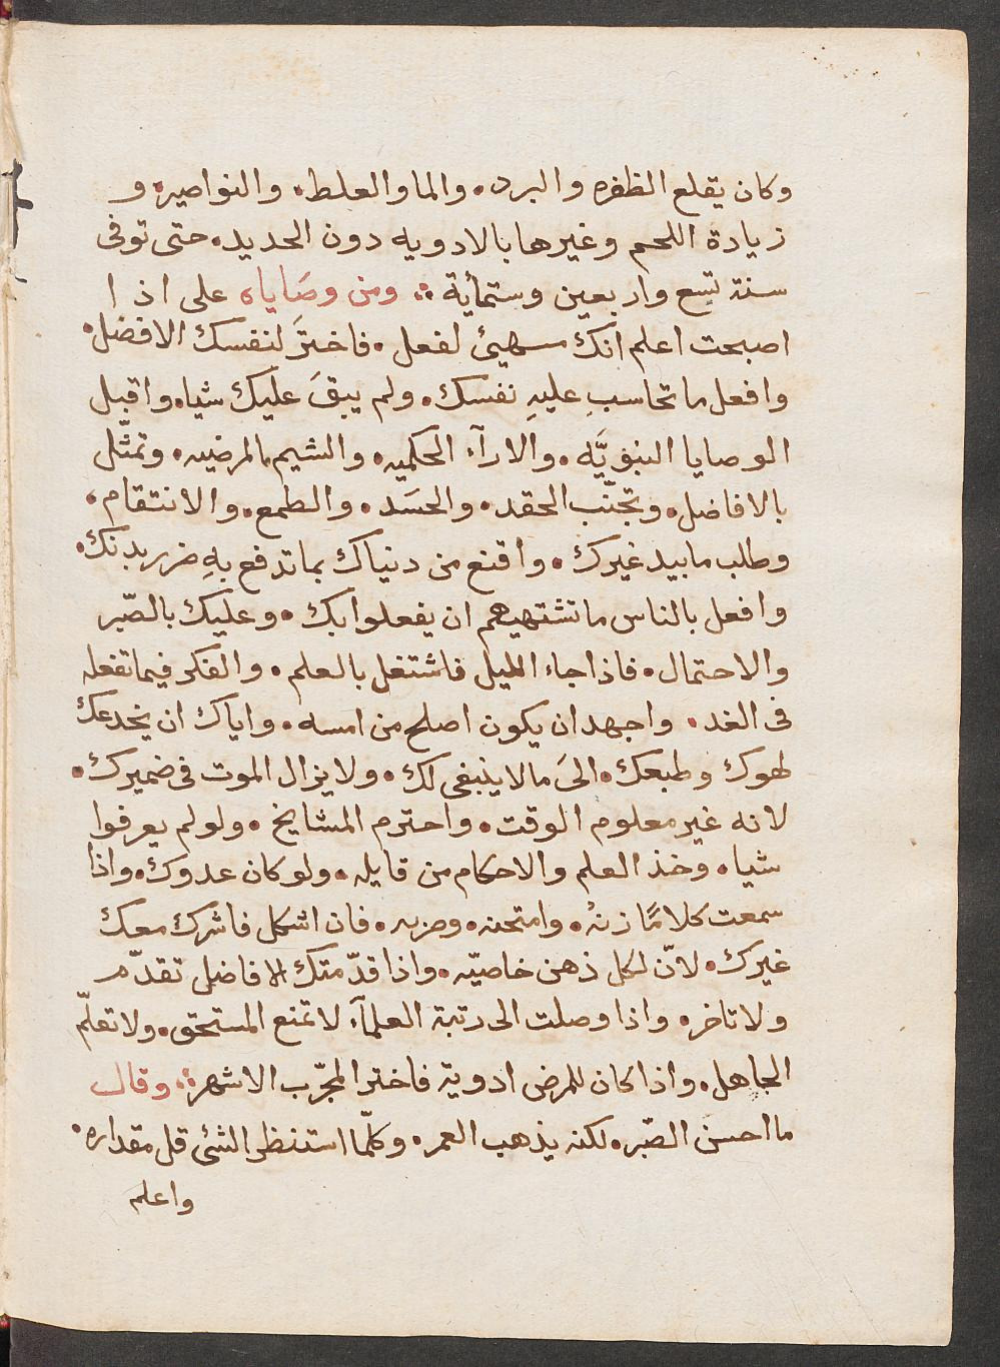 وكان يقلع الظفره والبرد. والما والغلط. والنواصير. و
زيادة اللحم وغيرها بالادويه دون الحديد. حتى توفى
سنة تسع واربعين وستمأية ∴ ومن وصَاياه على اذا
اصبحت اعلم انك مهيئ لفعل. فاخترَ لنفسك الافضل.
وافعل ما تحاسب عليهِ نفسك. ولم يبقَ عليك شياء. واقبل
الوصايا النبوَيَّه. والارآء الحكميه. والشيم المرضيه. وتمثّل
بالافاضل. وتجنّب الحقد. والحسَد. والطمع. والانتقام.
وطلب ما بيد غيرك. واقنع من دنياك بما تدفع بهِ ضرر بدنك.
وافعل بالناس ما تشتهيهم ان يفعلوا بك. وعليك بالصّبر
والاحتمال. فاذا جاء الليل فاشتغل بالعلم. والفكر فيما تفعله
فى الغد. واجهد ان يكون اصلح من امسه. واياك ان يخدعك
لهوك وطبعك. الىَ ما لا ينبغى لك. ولا يزال الموت فى ضميرك.
لانه غير معلوم الوقت. واحترم المشايخ. ولو لم يعرفوا
شياء. وخذ العلم والاحكام من قايله. ولو كان عدوك. واذا
سمعت كلامًا زنهُ. وامتحنه. وحرره. فان اشكل فاشرك معك
غيرك. لانّ لكل ذهن خاصيّه. واذا قدّمتك الافاضل تقدّم
ولا تاخر. واذا وصلت الى رتبة العلمآء لا تمنع المستحق. ولا تعلّم
الجاهل. واذا كان للمرض ادوية فاختر المجرّب الاشهر ∴ وقال
ما احسن الصّبر. لكنه يذهب العمر. وكلّما استنظر الشئ قل مقداره.
واعلم